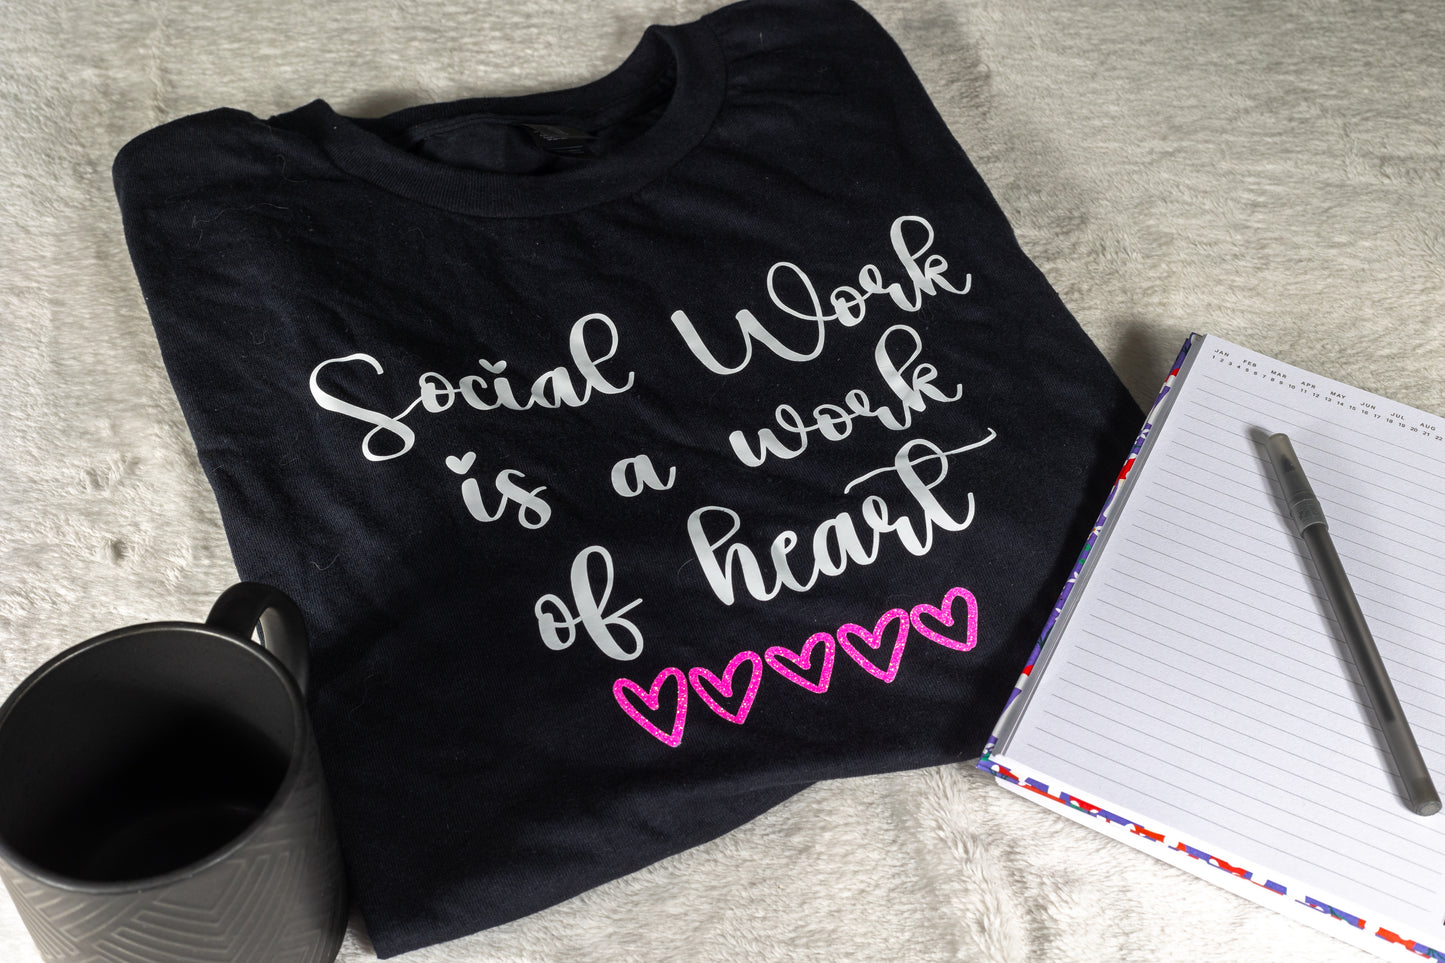 Social Work
is a work
of heart
JAN FEB MAR APR MAY JUN JUL AUG
1 2 3 4 5 6 7 8 9 10 11 12 13 14 15 16 17 18 19 20 21 22